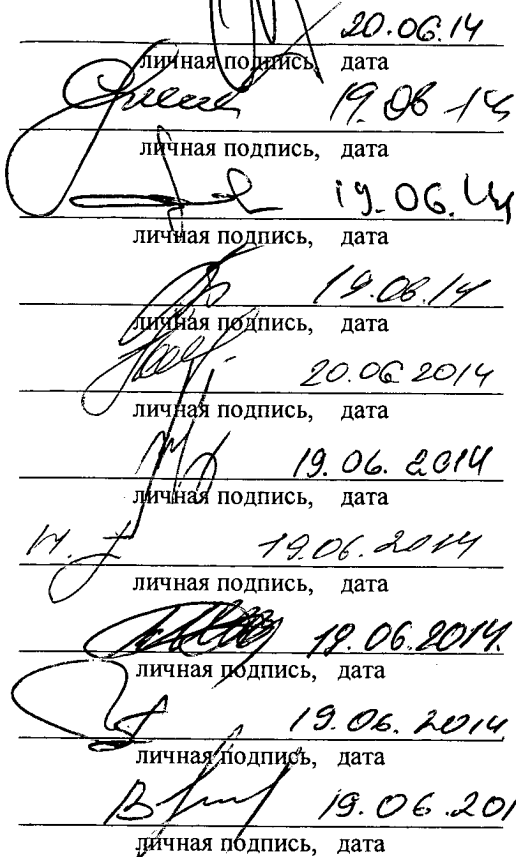 20.06.14
личная подпись, дата
19.06.14
личная подпись, дата
19.06.14
личная подпись, дата
19.06.14
личная подпись, дата
20.06.2014
личная подпись, дата
19.06.2014
личная подпись, дата
19.06.2014
личная подпись, дата
19.06.2014.
личная подпись, дата
19.06.2014
личная подпись, дата
19.06.201
личная подпись, дата